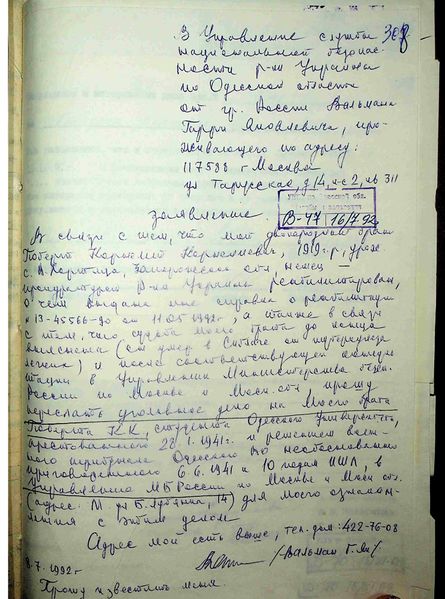 308
В Управление службы
национальной безопас-
ности р-ки Украина
по Одесской области
от гр. России Вальмана
Гарри Яковлевича, про-
живающего по адресу:
117588 г Москва
ул Тарусская, д 14, к-с 2, кв 311
В-47 16/7 92
заявление.
В связи с тем, что мой двоюродный брат
Гооберт Корнелий Корнелиевич, 1919 г.р, урож.
с. Н. Хортица, Запорожской обл, немец —
прокуратурой р-ки Украина реабилитирован,
о чем выдана мне справка о реабилитации
13-45566-90 от 11.05.1992 г, а также в связи
с тем, что судьба моего брата до конца
выяснена (он умер в Сибири от туберкулеза
легких) и после соответствующей консуль
тации в Управлении Министерства безоп.
России по Москве и Моск. обл, прошу
переслать уголовное дело на моего брата
К.К, студента Одесского университета,
арестованного 28.1.1941 г. и решением воен-
ного трибунала Одесского ВО необоснованно
приговоренного 6.6.1941 к 10 годам ИТЛ, в
Управление МБ России по Москве и Моск обл.
(адрес: М. ул Б. Лубянка, 14) для моего ознаком-
ления с этим делом
Адрес мой есть выше, тел. дом: 422-76-08
/Вальман Г.Я/
8.7.1992 г
Прошу известить меня.